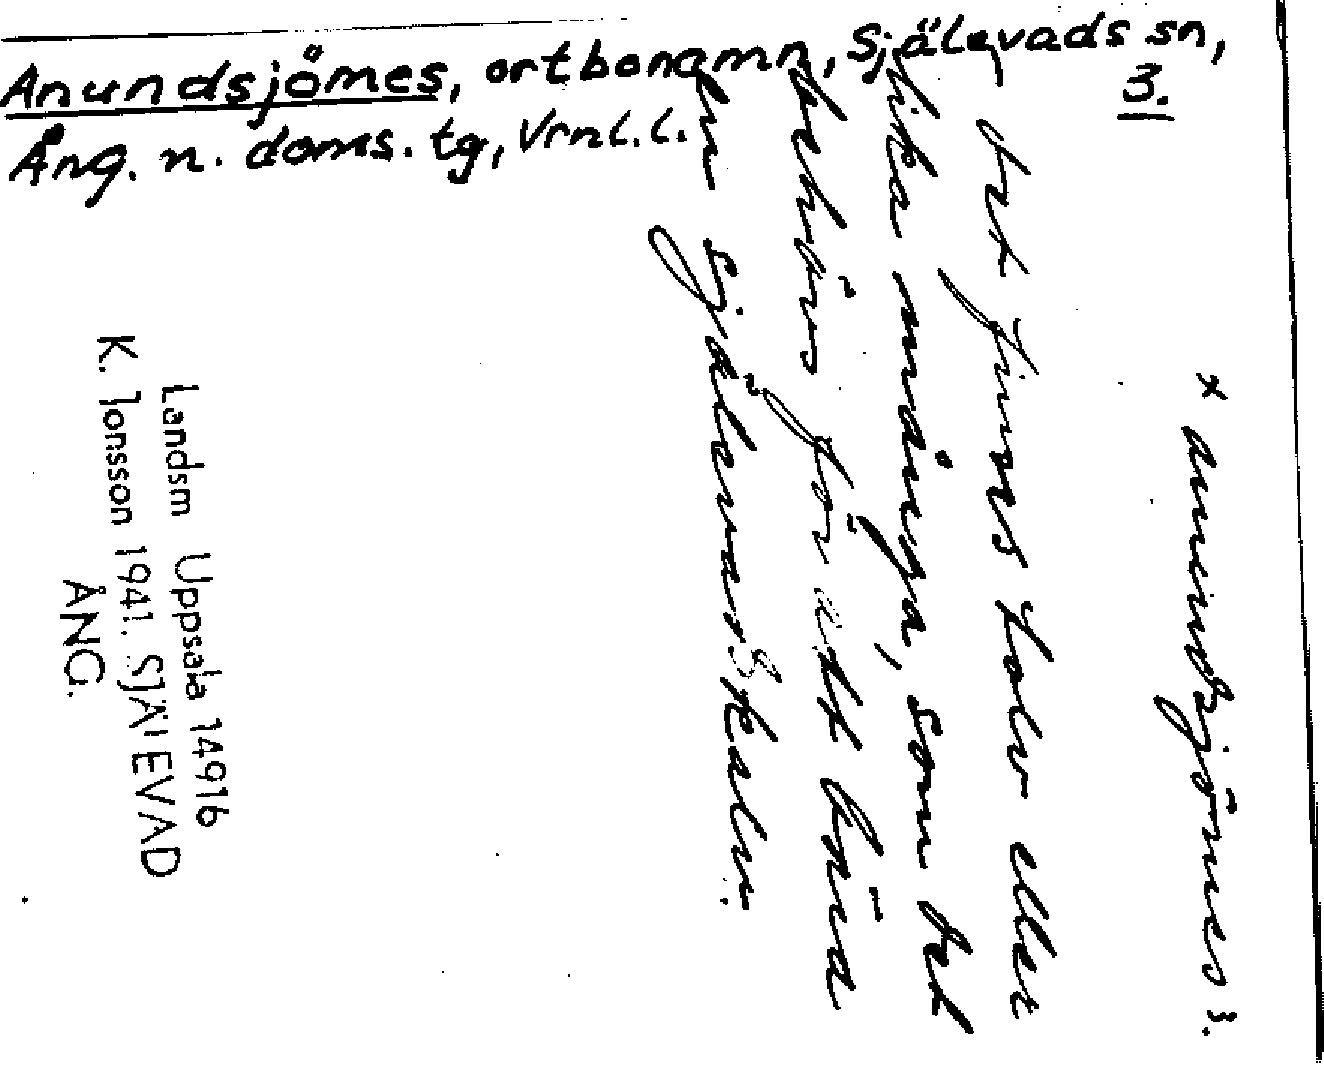 Anundsjömes, ortbonamn, Själevads sn, 3.
Ång. n. doms. tg, Vrnl. l.
x anundsjömes 3.
det finns tolv eller
lika många, som det
behövs för att binda
en själevadskalv.
Landsm Uppsala 14916
K. Jonsson 1941. SJÄLEVAD
ÅNG.